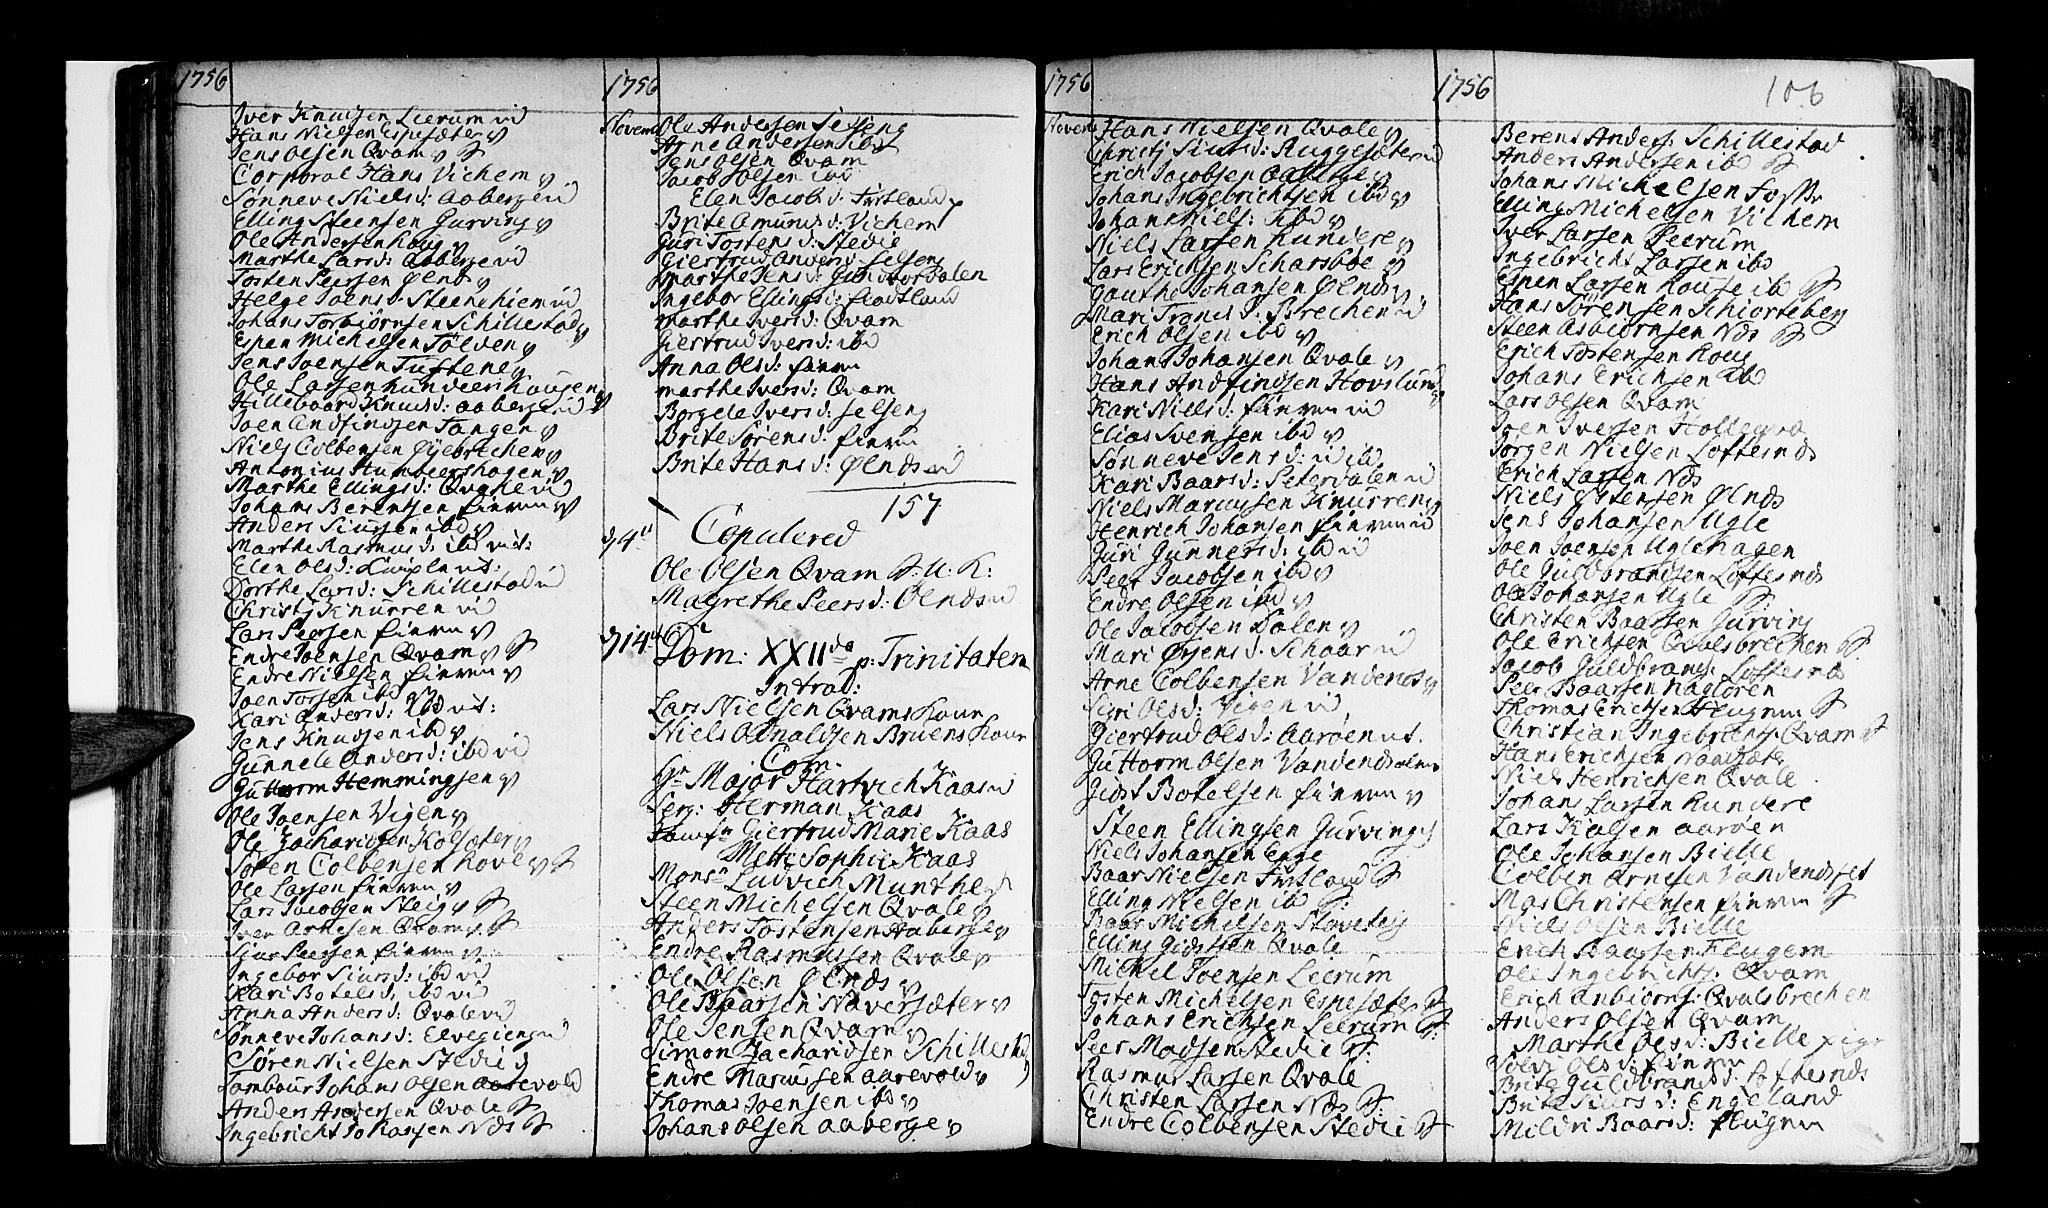 1756
Iver Knudsen Leerum ux
Hans Nielsen Espesæter ux
Jens Olsen Qvam ux
Corporal Hans Vichem ux
Sønneve Nielsd: Aaberge vid
Elling Steensen Gurving ux
Ole Andersen Houg ux
Marthe Larsd: Aaberge vid
Tosten Peersen Ølnds ux
Helge Joensd: Steenehiem vid
Johans Torbiørnsen Schillestad ux
Espen Michelsen Tølven ux
Jens Joensen Tuftene ux
Ole Larsen Lundeers Hougen ux
Hillebaard Knudsd: Aaberge vid
Joen Andfindsen Tangen ux
Niels Colbensen Øyebrechen ux
Antonius Humbeershagen ux
Marthe Ellingsd: Qvale vid
Johans Berentsen ux
Anders Siursen ibd ux
Marthe Rasmusd: ibd vid:
Elen Olsd: vid:
Dorthe Larsd: Schillestad vid
Christj Knurren vid
Lars Peersen ux
Endre Joensen Qvam ux
Endre Nielsen ux
Joen ibd ux
Kari Andersd: ibd vid:
Jens Knudsen ibd ux
Gunnele Andersd: ibd vid
Guttorm Hemmingsen ux
Ole Joensen Vigen ux
Ole Zacharidsen Kolsæter ux
Søren Colbensen Hove ux
Ole Larsen ux
Lars Jacobsen Steig ux
Iver Arnesen Qvam ux
Siur Peersen ux
Ingebor Siursd: ibd vid
Kari Botelsd: ibd vid
Anna Andersd: Qvale vid
Sønneve Johansd: Elvegieng vid
Søren Nielsen Stedie
Tambour Johans Olsen Aarevold
Anders Andersen Qvale
Ingebricht Johansen Nds
1756
Novem:
Ole Andersen Selseng
Arne Andersen ibd
Jens Olsen Qvam
Jacob Olsen ibd
Elen Jacobsd: Frstland
Brite Amundsd: Vichem
Guri Tostensd: Stedie
Giertrud Andersd: Selseng
Marthe Jensd: Gundersdalen
Ingebor Ellingsd: Frostland
Marthe Iversd: Qvam
Giertrud Iversd: ibd
Anna Olsd:
Marthe Iversd: Qvam
Borgele Iversd: Selseng
Brite Sørensd:
Brite Hansd: Ølnds vid
157
Copulered
Ole Olsen Qvam S. U. K:
Magrethe Peersd: Ølnds vid
d 14de
Dom: XXIIda p: Trinitatem
Introd:
Lars Nielsen Qvams Kone
Niels Olnaldsen Bruens Kone
Com.
Hr Major Hartvich Kaas
Serg: Herman Kaas
Jomfr Giertrud Marie Kaas
Mette Sophie Kaas
Monsr Ludvich Munthe
Steen Michelsen Qvale ux
Anders Tostensen Aaberge ux
Endre Rasmussen Qvale ux
Ole Olsen Ølnds ux
Ole Baarsen Naversæter ux
Ole Jensen Qvam ux
Simon Zacharidsen Schillestad ux
Endre Mariussen Aarevold ux
Thomas Joensen ibd ux
Johans Olsen Aaberge ux
1756
Novem:
Hans Nielsen Qvale ux
Christj Siursd: Ruggesæter vid
Erich Jacobsen Aaberge ux
Johans Ingebrichtsen ibd ux
Johans Niels: ibd ux
Niels Larsen Lundere ux
Lars Erichsen Scharsboe ux
Gauthe Johansen Ølnds ux
Mari Tronsd: Brechen vid
Erich Olsen ibd ux
Johans Johansen Qvale ux
Hans Andfindsen Hovslund ux
Kari Nielsd: vid
Elias Svensen ibd ux
Sønneve Jensd: ibid
Kari Baarsd: Petersdalen vid
Niels Marcussen Knurren ux
Henrich Johansen
Guri Gunnersd: ibd vid
Peer Jacobsen ibd ux
Endre Olsen ibd ux
Ole Jacobsen Dalen ux
Mari Ørjensd: Schaar vid
Arne Colbensen Vandends ux
Siri Olsd: Vigen vid
Giertrud Olsd: Aarøen vid.
Guttorm Olsen
Gidst Botelsen ux
Steen Ellingsen Gurving
Niels Johansen Enge
Baar Nielsen Frstland
Elling Nielsen ibd
Baar Michelsen Stoveteig
Elling Gidstsen Qvale
Michel Joensen Leerum
Tosten Michelsen Espesæter
Johans Erichsen Leerum
Peer Madsen Stedie
Rasmus Larsen Qvale
Christen Larsen Nds
Endre Colbensen Stedie
1756
106
Berent Anders: Schillestad
Anders Andersen ibd
Johans Michelsen Foss
Elling Michelsen Vichem
Iver Larsen Leerum
Ingebricht Larsen ibd
Espen Larsen Houge ibd
Hans Sørensen Schiorteberg
Steen Asbiørnsen Nds
Erich Tostensen Houg
Johans Erichsen ibd
Lars Olsen Qvam
Joen Iversen
Jørgen Nielsen Loftesnds
Erich Larsen Nds
Niels Østensen Ølnds
Jens Johansen Ugle
Joen Joensen Uglehagen
Ole Guldbrandsen Loftesnds
Ole Johansen Ugle
Christen Baarsen Gurving
Ole Erichsen Qvalsbrechen
Jacob Guldbrands: Loftesnds
Peer Baarsen Hagløren
Thomas Erichsen Flugem
Christian Ingebrichts: Qvam
Hans Erichsen
Niels Henrichsen Qvale
Johans Larsen Lundere
Lars Kalsen Aarøen
Ole Johansen Bielle
Colben Arnesen
Mas Christensen
Niels Olsen Bielle
Erich Baarsen Flugem
Ole Ingebrichts: Qvam
Erich Anbiørns: Qvalsbrechen
Anders Olsen Qvam
Marthe Olsd: Bielle
Olsd:
Brite Guldbrandsd: Loftesnds
Brite Siursd: Engeland
Mildri Baarsd: Flugem